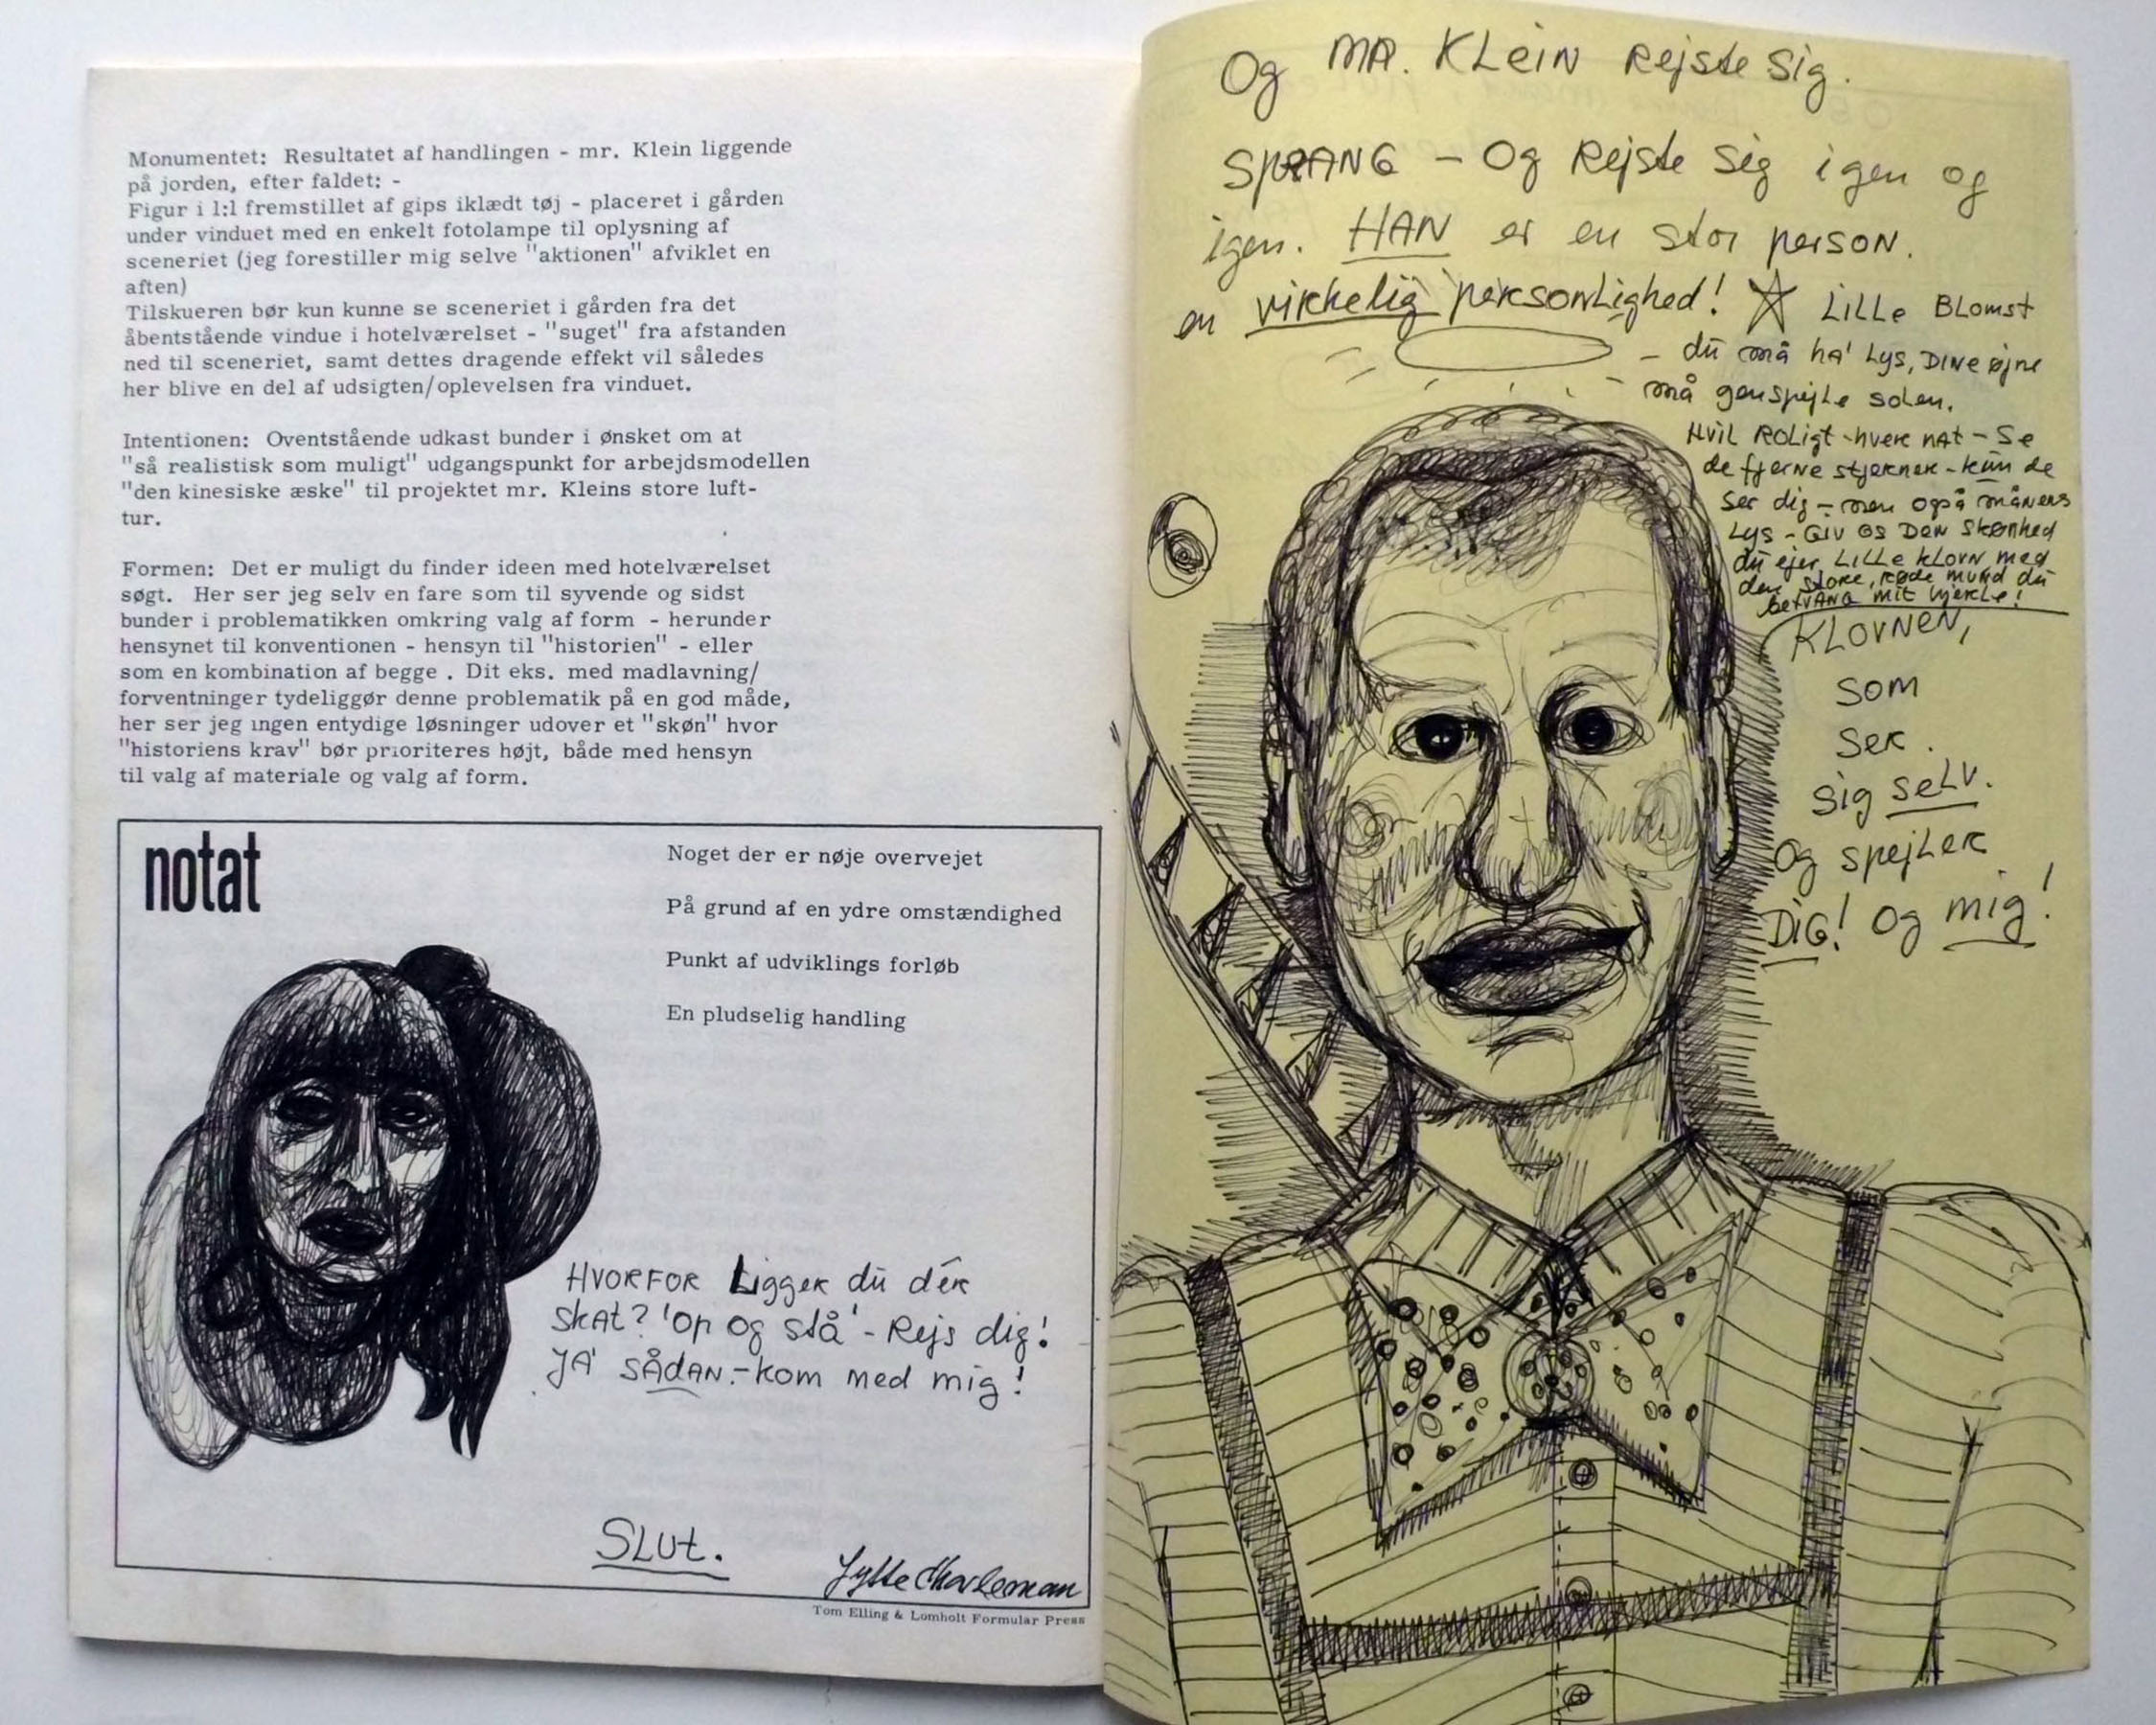 Monumentet: Resultatet af handlingen - mr. Klein liggende
på jorden, efter faldet: -
Figur i 1:1 fremstillet af gips iklædt tøj - placeret i gården
under vinduet med en enkelt fotolampe til oplysning af
sceneriet (jeg forestiller mig selve "aktionen" afviklet en
aften)
Tilskueren bør kun kunne se sceneriet i gården fra det
åbentstående vindue i hotelværelset - "suget" fra afstanden
ned til sceneriet, samt dettes dragende effekt vil således
her blive en del af udsigten/oplevelsen fra vinduet.
Intentionen: Oventstående udkast bunder i ønsket om at
"så realistisk som muligt" udgangspunkt for arbejdsmodellen
"den kinesiske æske" til projektet mr. Kleins store luft-
tur.
Formen: Det er muligt du finder ideen med hotelværelset
søgt. Her ser jeg selv en fare som til syvende og sidst
bunder i problematikken omkring valg af form - herunder
hensynet til konventionen - hensyn til "historien" - eller
som en kombination af begge . Dit eks. med madlavning/
forventninger tydeliggør denne problematik på en god måde,
her ser jeg ingen entydige løsninger udover et "skøn" hvor
"historiens krav" bør prioriteres højt, både med hensyn
til valg af materiale og valg af form.
notat
Noget der er nøje overvejet
På grund af en ydre omstændighed
Punkt af udviklings forløb
En pludselig handling
HVORFOR Ligger du dér
skat? 'op og stå' - Rejs dig!
JA' SÅDAN. - kom med mig!
SLUT.
Jytte Charleman
Tom Elling & Lomholt Formular Press
Og MR. KLEIN Rejste Sig.
SPRANG - Og Rejste Sig igen og
igen. HAN er en stor person.
en virkelig personlighed! LILLE BLomst
- du må ha' Lys, DINE øjne
må genspejle solen.
Hvil Roligt - hver nat - Se
de fjerne stjerner - kun de
ser dig - men også månens
Lys - Giv os Den skønhed
du ejer LILLE klovn med
den store, røde mund du
betvang mit hjerte!
KLOVNEN,
som
ser.
sig selv.
Og spejler
DIG! og mig!